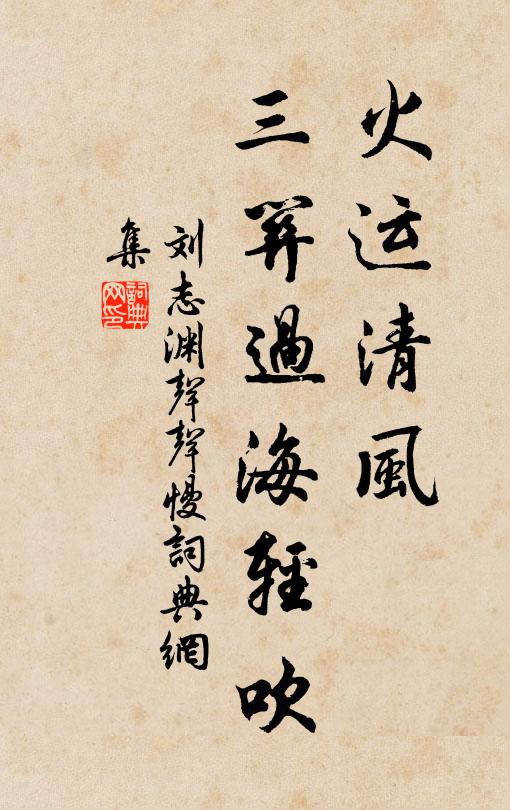 火运清風
三關過海輕吹
刘志渊聲聲慢詞典網
集
詞典
网印